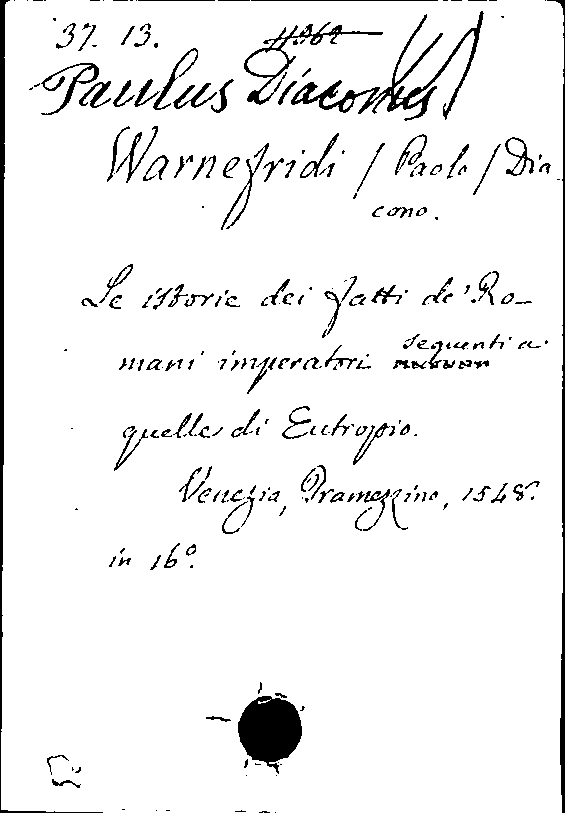 37. 13.
Paulus Diaconus
Warnefridi / Paolo / Dia
cono.
Le istorie dei fatti de' Ro-
mani imperatori seguenti a
quelle di Eutropio.
Venezia, Tramezzino, 1548.
in 16°.